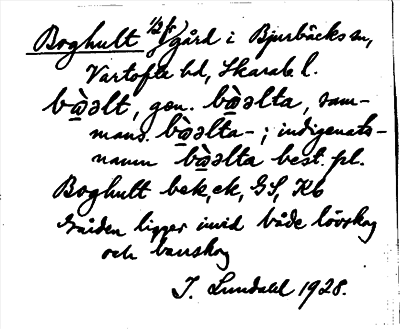 Boghult 1/2 gård i Bjurbäcks sn,
Vartofta hd, Skarab. l.
bɷ̀əlt, gen. bɷ̀əlta, sam-
mans. bɷ̀əlta- ; indigenats-
namn bɷ̀əlta best. pl.
Boghult bek, ek, GS, Kb
Gården ligger invid både lövskog
och barrskog
I. Lundahl 1928.